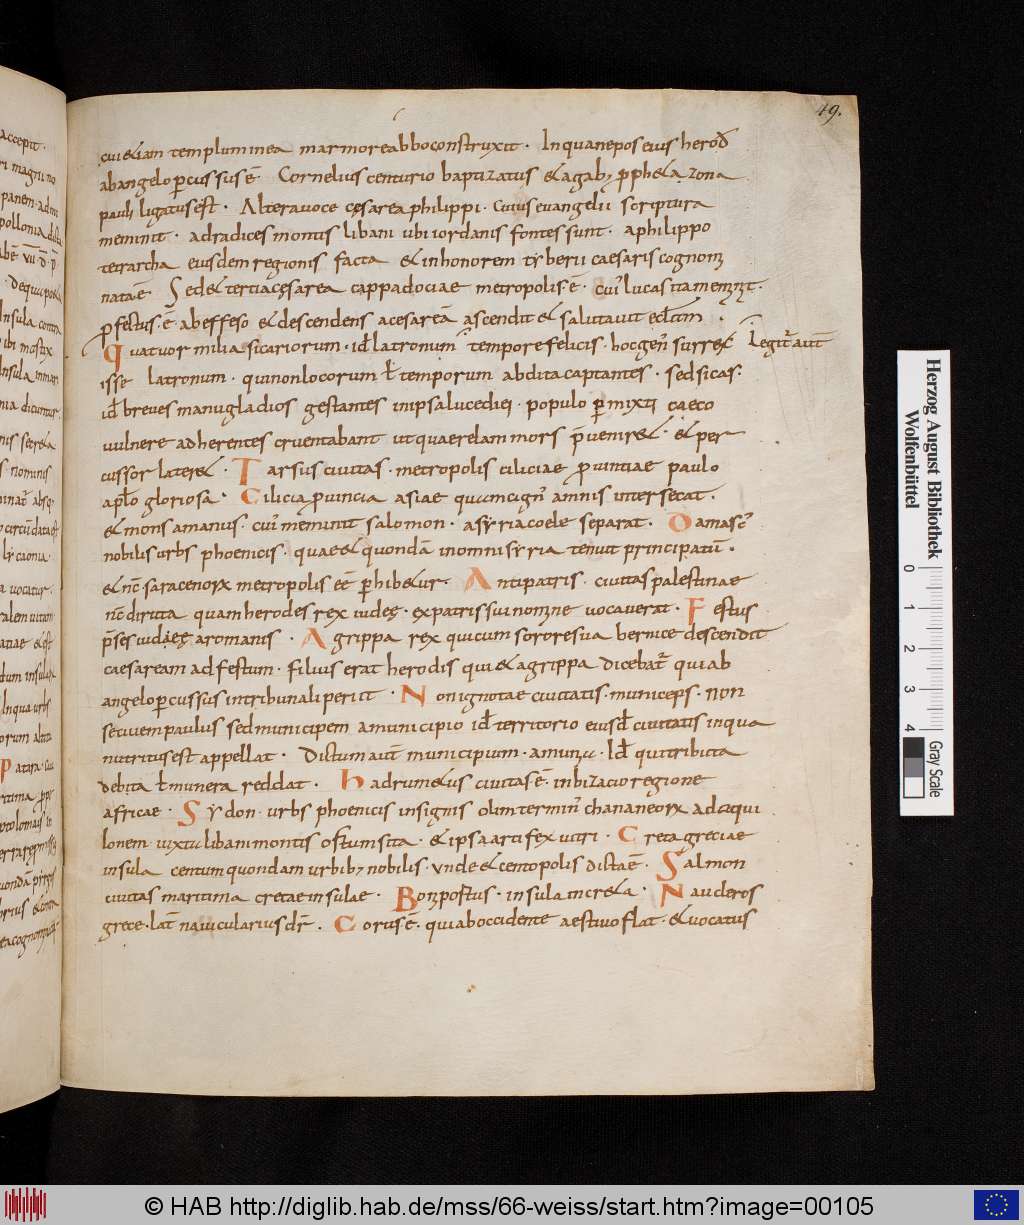 49.
cui etiam templum inea marmore abbo construxit · In qua nepos eius herod
ab angelo percussus ē · Cornelius centurio baptizatus et agabus ꝓpheta zona
pauli ligatus est · Altera voce cęsarea philippi · cuius evangelii scriptura
meminit · ad radices montis libani ubi iordanis fontes sunt · a philippo
tetrarcha eiusdem regionis facta et in honorem tyberii caesaris cognom
nata ē · Sed et tertia cęsarea cappadociae metropolis · ē · cuiꝰ lucas ita meminit ·
ꝓfectus · ē ab effeso et descendens a cesarēa ascendit et salutavit eccłam ·
Quatuor milia sicariorum · id̄ latronum tempore felicis · hoc genꝰ surrex Legitᷣ aut̄
isse latronum · qui non locorum ł temporum abdita captantes · sed sicas ·
id̄ breves manu gladios gestantes in ipsa luce diei · populo ꝑmixti caeco
vulnere adherentes cruentabant ut quaerelam mors p̄veniret · et per
cussor lateret · Tarsus civitas · metropolis ciliciae ꝓvintiae paulo
aplo gloriosa · Cilicia ꝓvincia asiae quam cignꝰ amnis intersecat ·
et mons amanus · cuiꝰ meminit salomon · a syria coele separat · Damascꝰ
nobilis urbs phoenicis · quae et quondā in omni syria tenuit principatū ·
et nc̄ saracenorꝝ metropolis eē ꝑhibetur · Antipatris · civitas palestinae
nc̄ diruta quam herodes rex iudeę · ex patris sui nomine vocaverat · Festus
p̄ses iudaeę a romanis · Agrippa rex qui cum sorore sua bernice descendit
caesaream ad festum · filius erat herodis qui et agrippa dicebatᷣ qui ab
angelo percussus in tribunali periit · Non ignotae civitatis · municeps · non
se civem paulus sed municipem a municipio id̄ territorio eiusd̄ civitatis in qua
nutritus est appellat · Dictum aut̄ municipium · a muniis · Id̄ qui tributa
debita ł munera reddat · Hadrumetus civitas ē · in bizacio regione
africae · Sydon · urbs phoenicis insignis olim terminꝰ chananeorꝝ ad aqui
lonem iuxtu libani montis ostium sita · et ipsa artifex vitri · Creta greciae
insula centum quondam urbibus nobilis · unde et centopolis dicta ē · Salmon
civitas maritima cretae insulae · Boniportus · in sula in creta · Naucleros
grece · lat̄ navicularius dr̄ · Corus · ē · qui ab occidente aestivo flat · et vocatus
accepit ·
Herzog August Bibliothek
Wolfenbüttel
0 1 2 3 4
Gray Scale
© HAB http://diglib.hab.de/mss/66-weiss/start.htm?image=00105